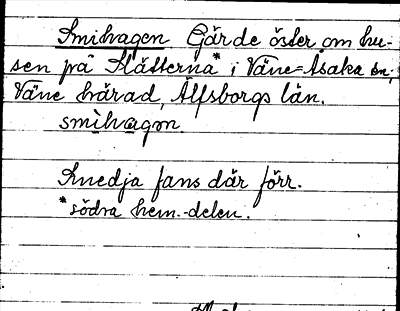 Smihagen Gärde öster om hu-
sen på Slätterna* i Väne-Åsaka sn,
Väne härad, Älfsborgs län.
smihagən
Smedja fans där förr.
*södra hem.-delen.